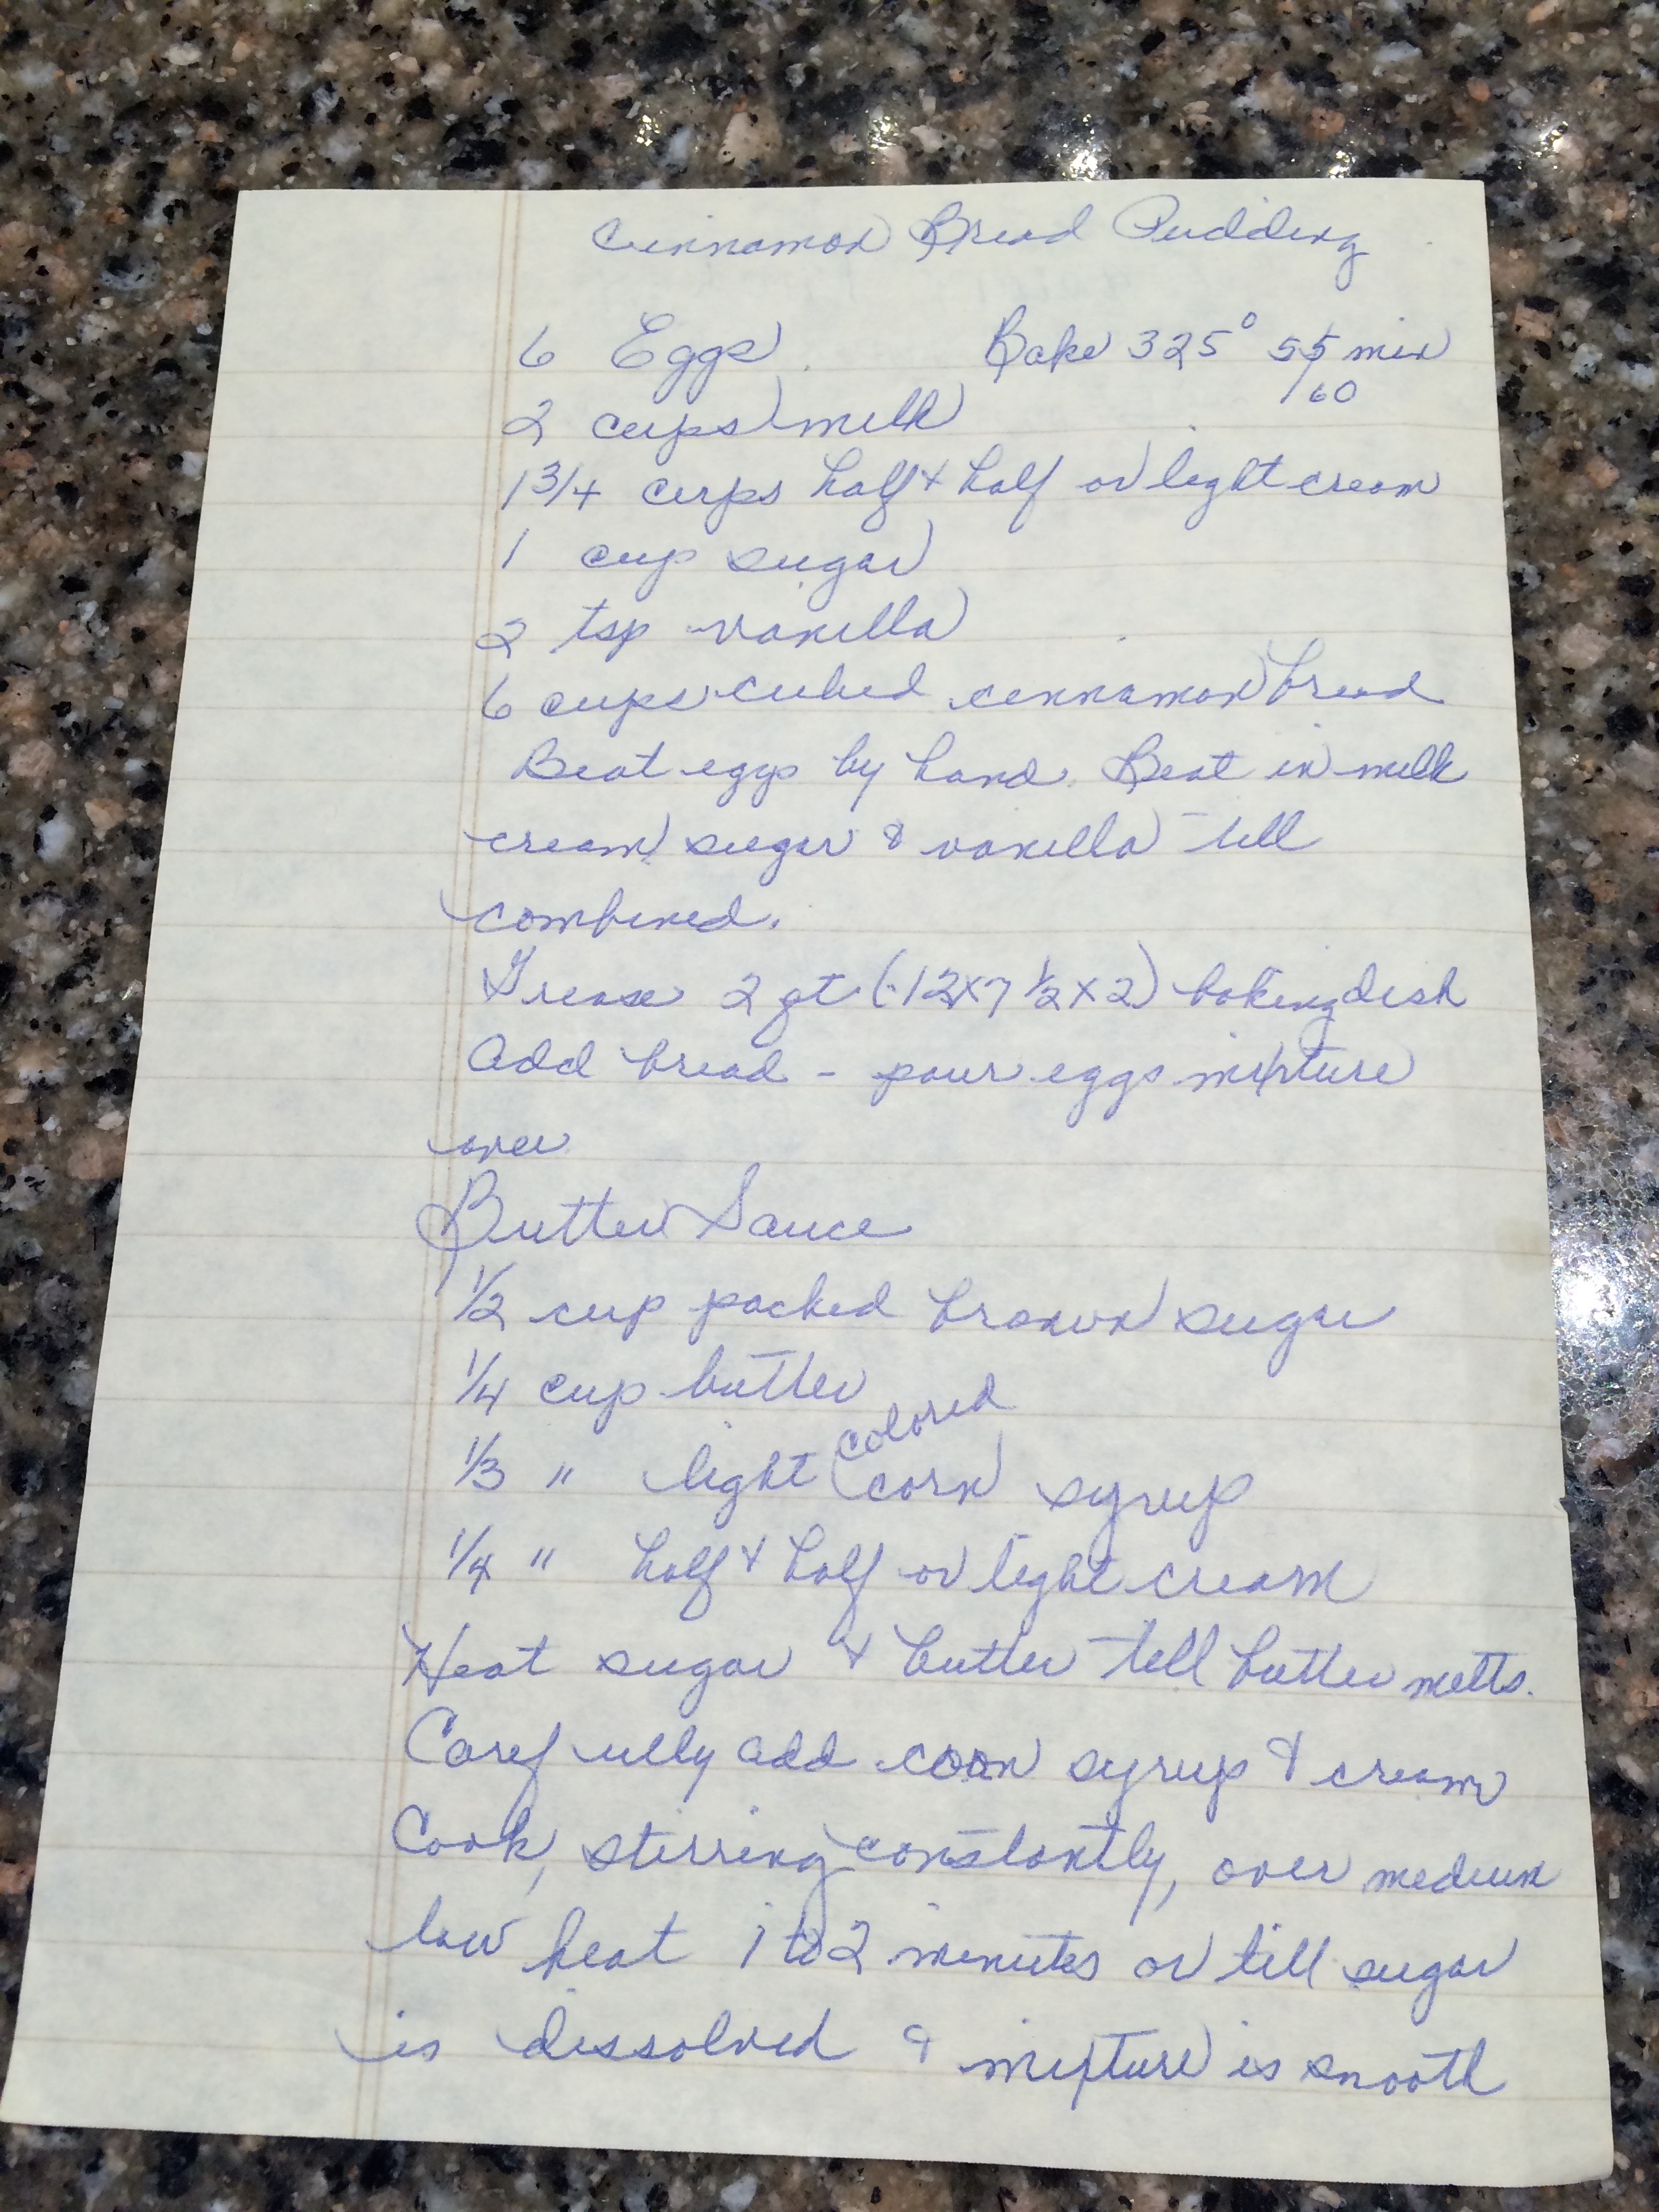 Cinnamon Bread Pudding
6 Eggs Bake 325° 55 min
/60
2 cups milk
1 3/4 cups half & half or light cream
1 cup sugar
2 tsp vanilla
6 cups cubed cinnamon bread
Beat eggs by hand. Beat in milk
cream sugar & vanilla till
combined.
Grease 2 qt (12x7 1/2 x2) baking dish
Add bread - pour eggs mixture
over
Butter Sauce
1/2 cup packed brown sugar
1/4 cup butter
colored
1/3 " light corn syrup
1/4 " half & half or light cream
Heat sugar & butter till butter melts.
Carefully add corn syrup & cream
Cook, stirring constantly, over medium
low heat 1 to 2 minutes or till sugar
is dissolved & mixture is smooth